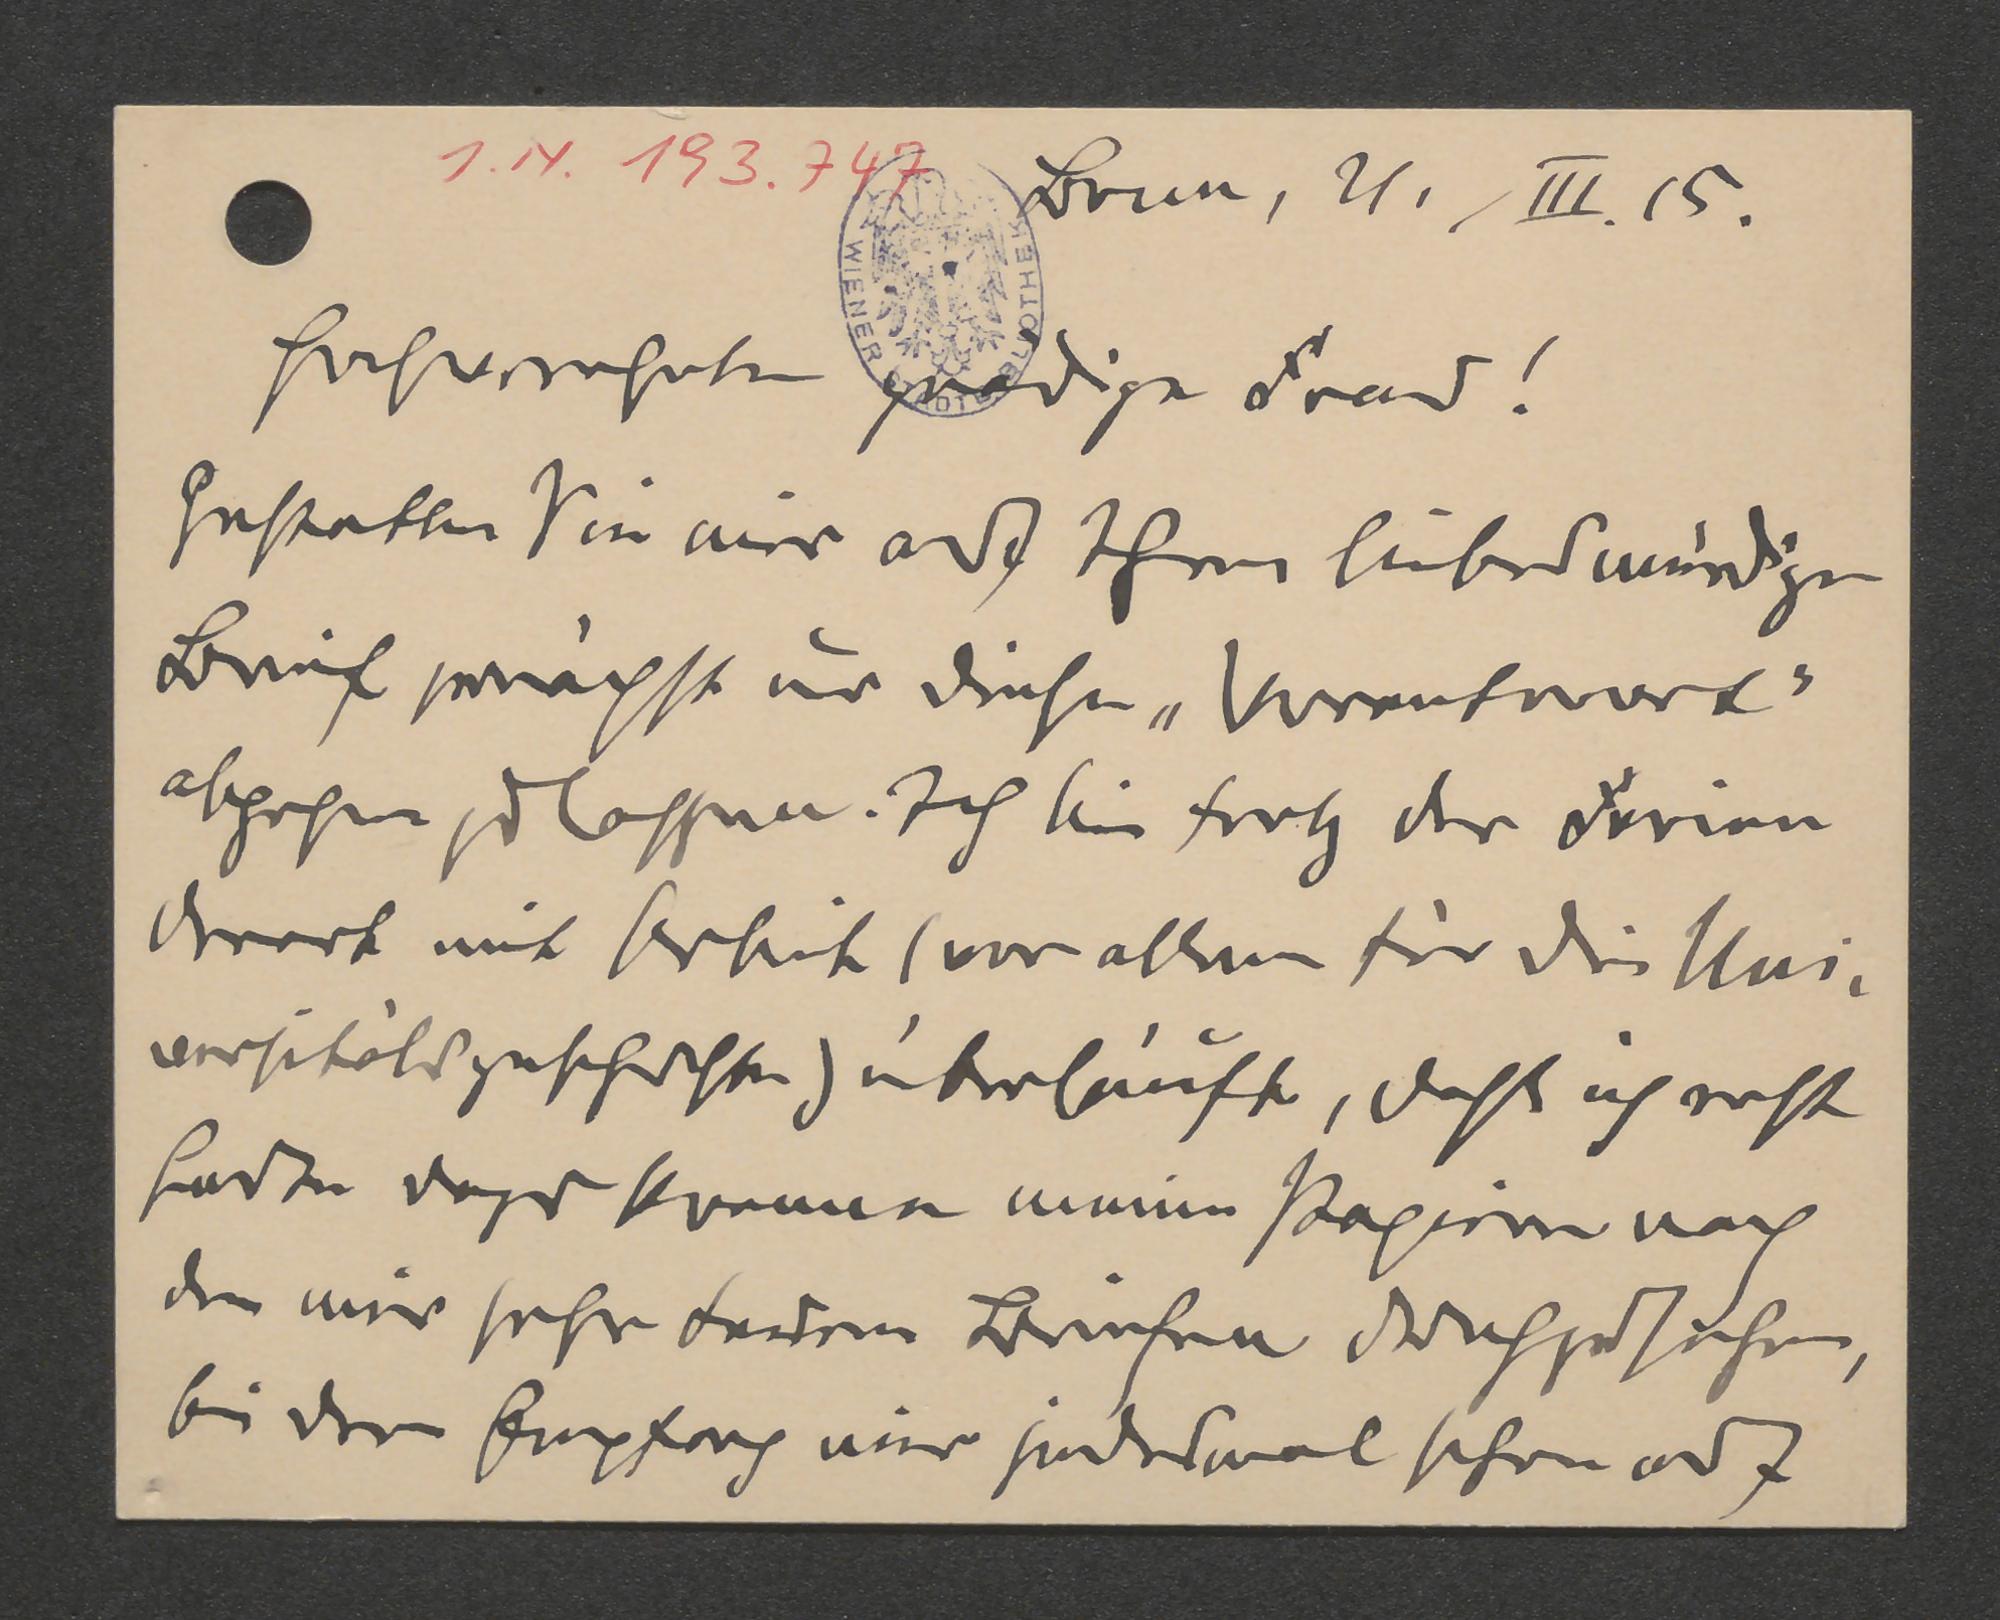 I.N. 193.747
Bern, 21./III. 15.
WIENER STADTBIBLIOTHEK
Hochverehrte gnädige Frau!
Gestatten Sie mir auf Ihren liebenswürdigen
Brief zunächst nur diese „Vorantwort"
abgehen zu lassen. Ich bin trotz der Ferien
derart mit Arbeit (vor allem für die Uni-
versitätsgeschichte) überhäuft, dass ich nicht
dazu komme meine Papiere nach
den mir sehr teuren Briefen durchzusehen,
bei deren Empfang mir jedesmal schon auf